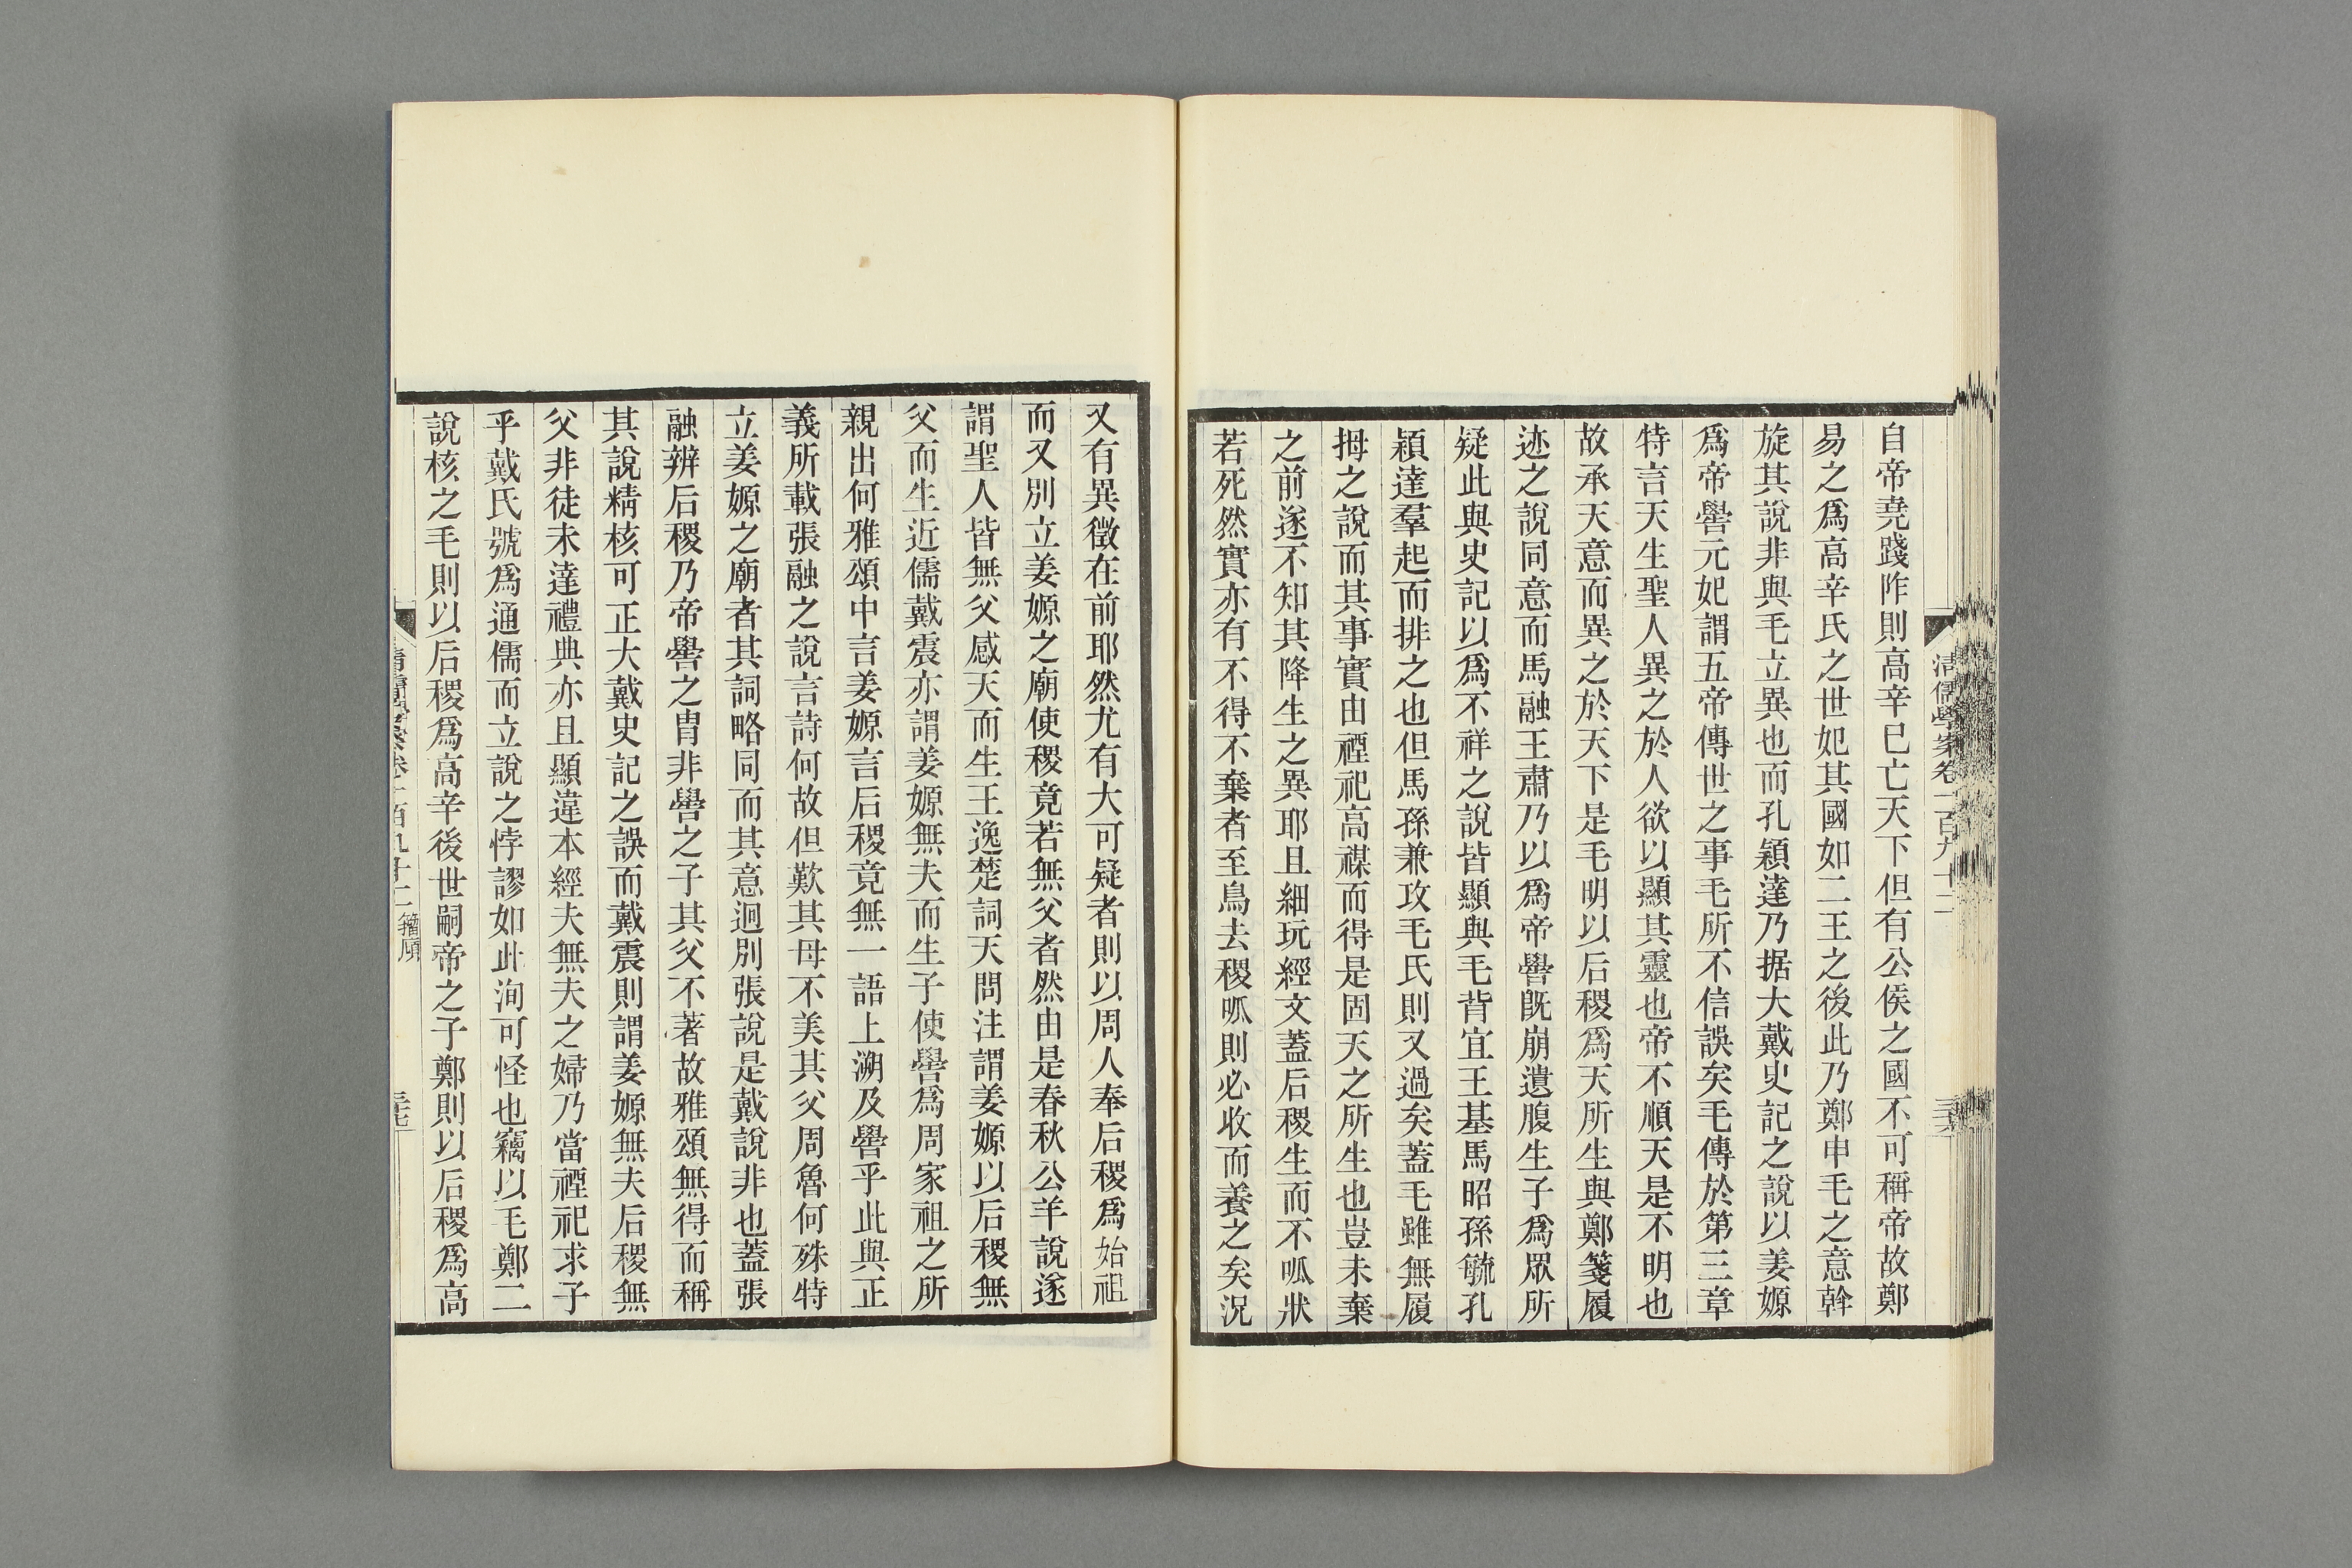 清儒學案卷一百九十二
三十六
自帝堯踐阼則高辛巳亡天下但有公侯之國不可稱帝故鄭
易之爲高辛氏之世妃其國如二王之後此乃鄭申毛之意幹
旋其說非與毛立異也而孔穎達乃据大戴史記之說以姜嫄
爲帝嚳元妃謂五帝傳世之事毛所不信誤矣毛傳於第三章
特言天生聖人異之於人欲以顯其靈也帝不順天是不明也
故承天意而異之於天下是毛明以后稷爲天所生與鄭箋履
迹之說同意而馬融王肅乃以爲帝嚳旣崩遺腹生子爲眾所
疑此與史記以爲不祥之說皆顯與毛背宜王基馬昭孫毓孔
穎達羣起而排之也但馬孫兼攻毛氏則又過矣蓋毛雖無履
拇之說而其事實由禋祀高禖而得是固天之所生也豈未棄
之前遂不知其降生之異耶且細玩經文蓋后稷生而不呱狀
若死然實亦有不得不棄者至鳥去稷呱則必收而養之矣況
又有異徵在前耶然尤有大可疑者則以周人奉后稷爲始祖
而又別立姜嫄之廟使稷竟若無父者然由是春秋公羊說遂
謂聖人皆無父感天而生王逸楚詞天問注謂姜嫄以后稷無
父而生近儒戴震亦謂姜嫄無夫而生子使嚳爲周家祖之所
親出何雅頌中言姜嫄言后稷竟無一語上溯及嚳乎此與正
義所載張融之說言詩何故但歎其母不美其父周魯何殊特
立姜嫄之廟者其詞略同而其意迥別張說是戴說非也蓋張
融辨后稷乃帝嚳之冑非嚳之子其父不著故雅頌無得而稱
其說精核可正大戴史記之誤而戴震則謂姜嫄無夫后稷無
父非徒未達禮典亦且顯違本經夫無夫之婦乃當禋祀求子
乎戴氏號爲通儒而立說之悖謬如此洵可怪也竊以毛鄭二
說核之毛則以后稷爲高辛後世嗣帝之子鄭則以后稷爲高